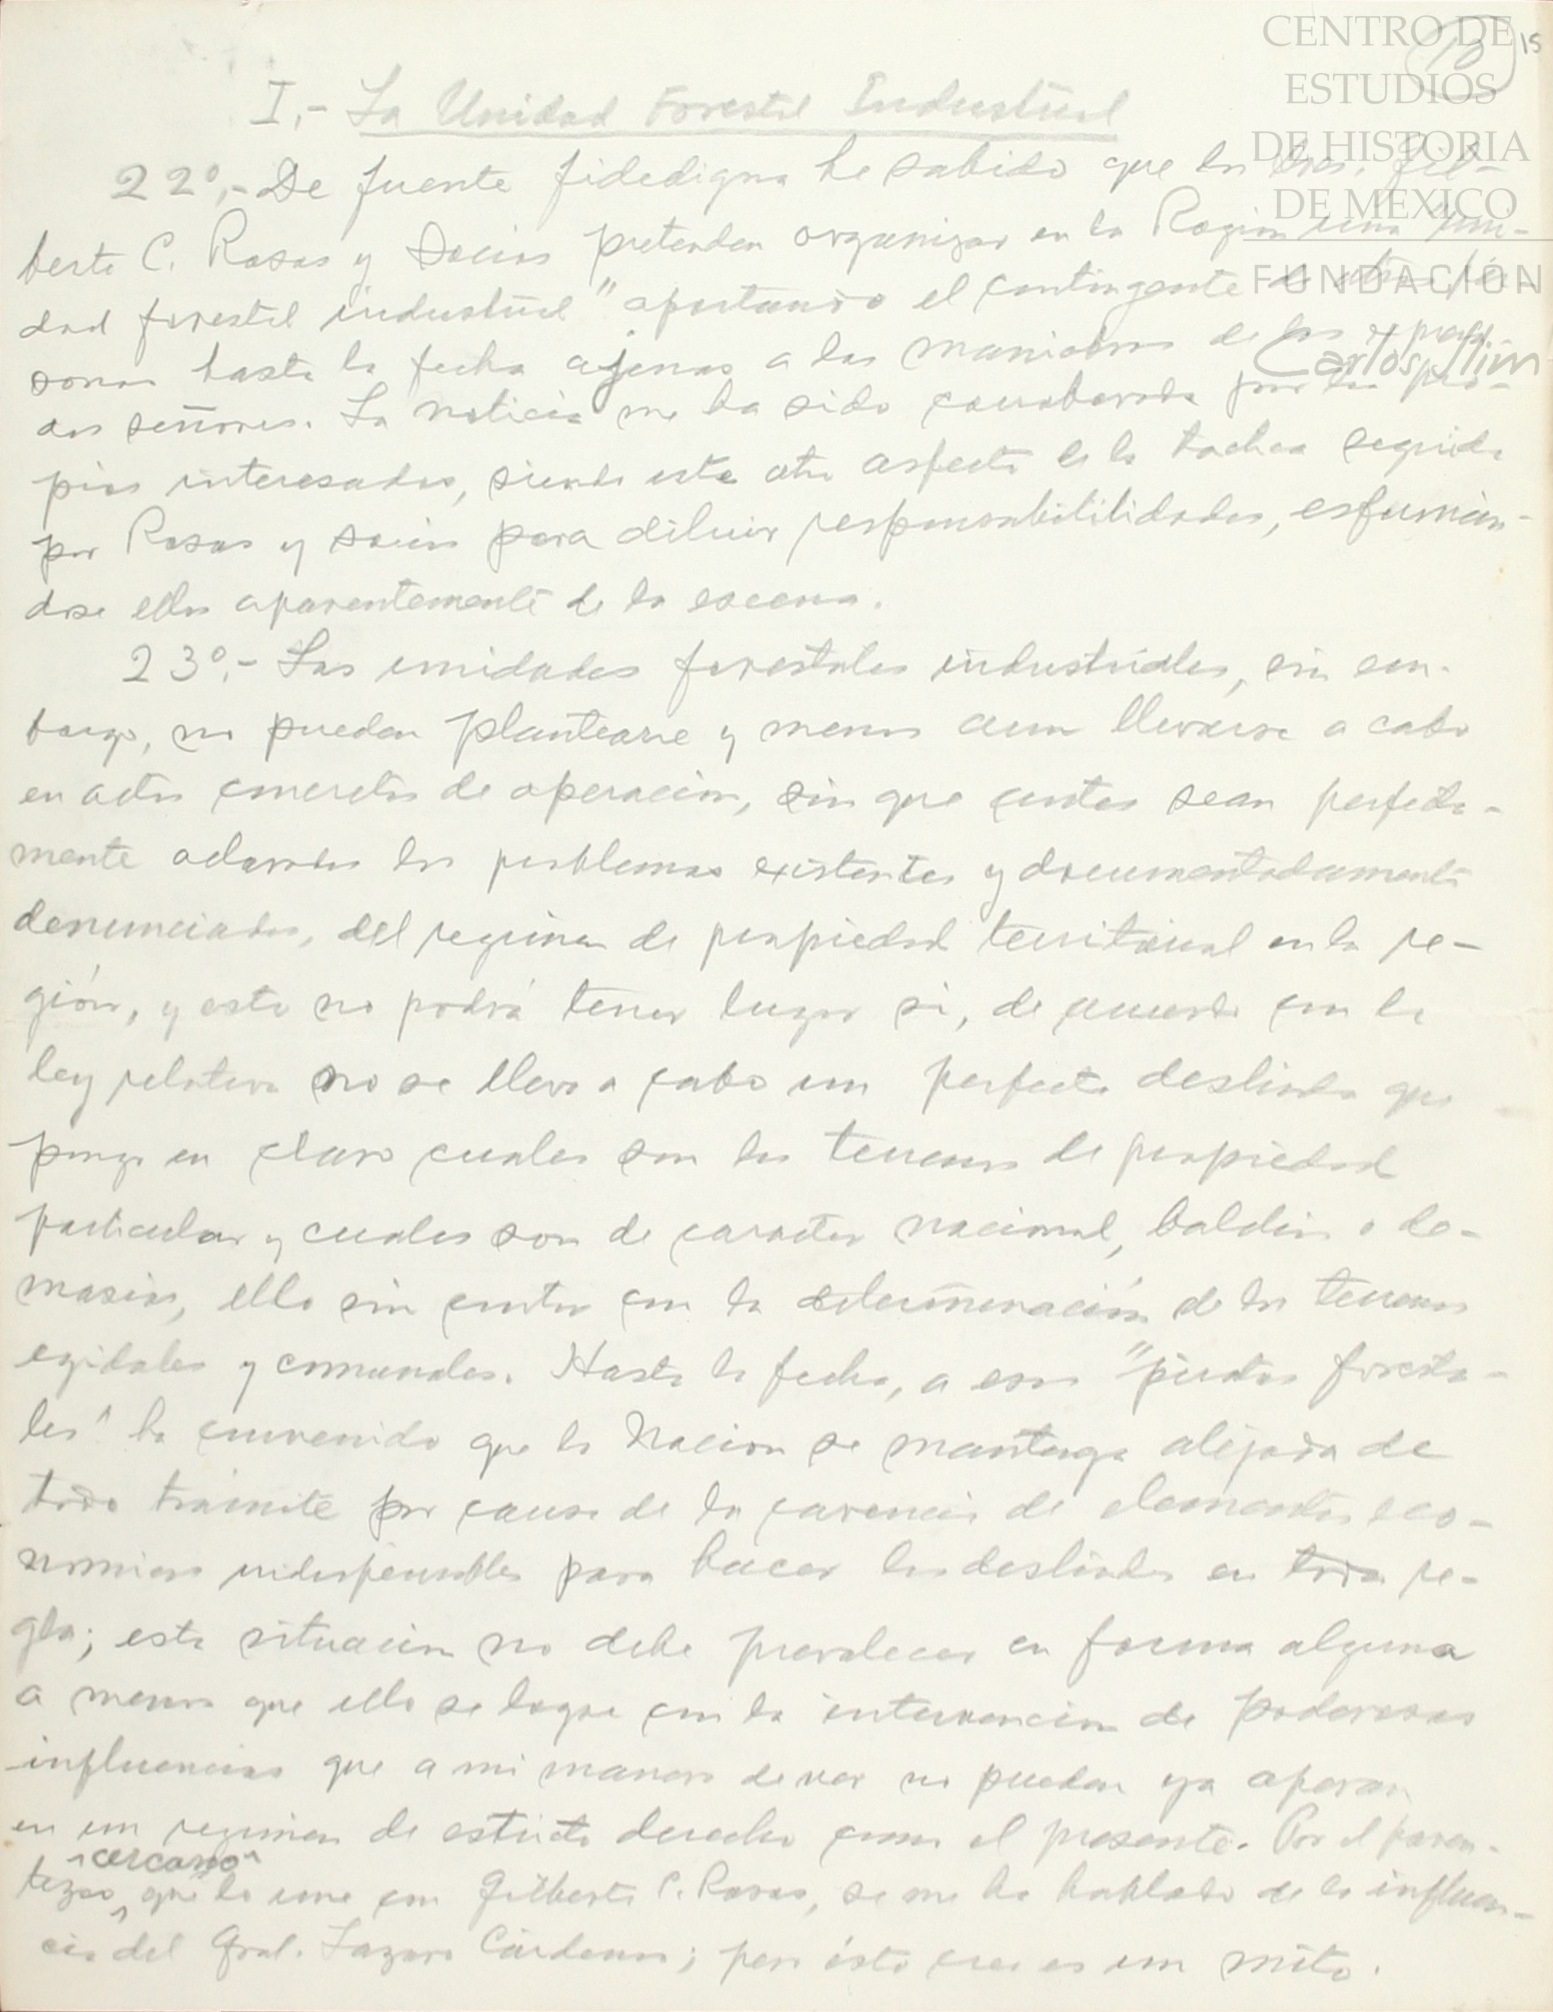 CENTRO DE
ESTUDIOS
DE HISTORIA
DE MEXICO
FUNDACIÓN
Carlos Slim
15
I.- La Unidad Forestal Industrial
22º.- De fuente fidedigna he sabido que los Sres. Gil-
berto C. Rosas y Socios pretenden organizar en la Región una "uni-
dad forestal industrial" aportando el contingente de otras per-
sonas hasta la fecha ajenas a las maniobras de los expresa-
dos señores. La noticia me ha sido corroborada por los pro-
pios interesados, siendo este otro aspecto de la táctica seguida
por Rosas y socios para diluir responsabilidades, esfumán-
dose ellos aparentemente de la escena.
23º.- Las unidades forestales industriales, sin em-
bargo, no pueden plantearse y menos aun llevarse a cabo
en actos concretos de operación, sin que antes sean perfecta-
mente aclarados los problemas existentes y documentadamente
denunciados, del regimen de propiedad territorial en la re-
gión, y esto no podrá tener lugar si, de acuerdo con la
ley relativa no se lleva a cabo un perfecto deslinde que
ponga en claro cuales son los terrenos de propiedad
particular y cuales son de caracter nacional, baldios o de-
masias, ello sin contar con la determinación de los terrenos
egidales y comunales. Hasta la fecha, a esos "piratas foresta-
les" ha convenido que la Nacion se mantenga alejada de
todo trámite por causa de la carencia de elementos eco-
nomicos indispensables para hacer los deslindes en toda re-
gla; esta situacion no debe prevalecer en forma alguna
a menos que ello se logre con la intervencion de poderosas
influencias que a mi manera de ver no pueden ya operar
en un regimen de estricto derecho como el presente. Por el paren-
tezco cercano que lo une con Gilberto C. Rosas, se me ha hablado de la influen-
cia del Gral. Lazaro Cárdenas; pero ésto creo es un mito.